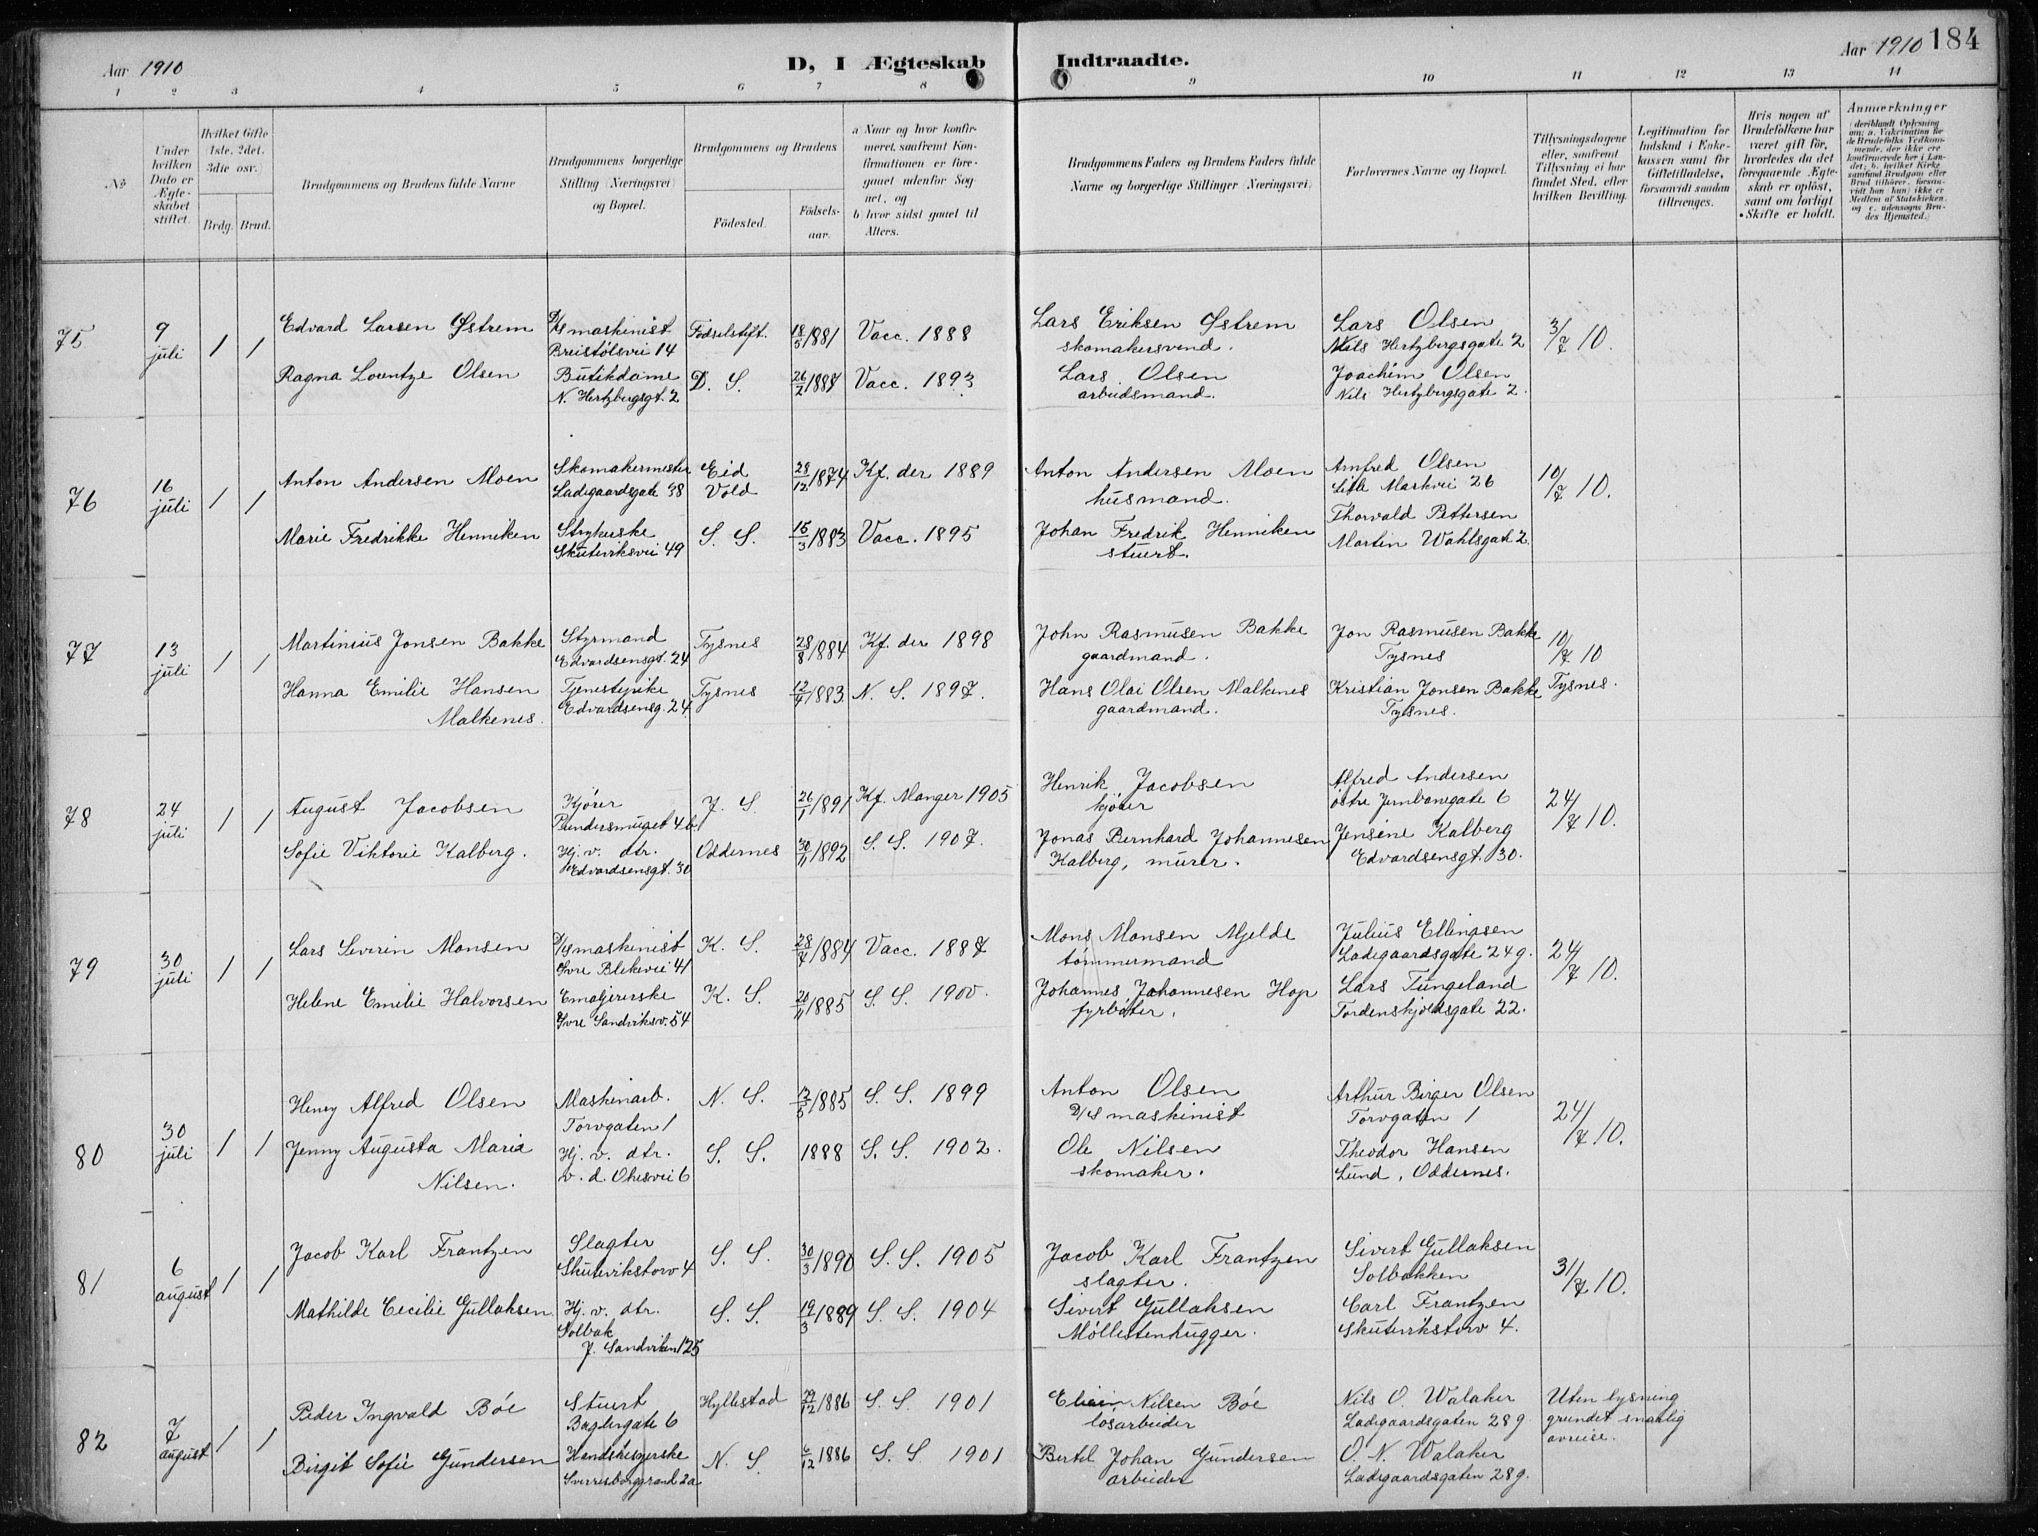 Aar 1910
D, I Ægteskab Indtraadte.
Aar 1910 184
1 2 3 4 5 6 7 8 9 10 11 12 13 14
No
Under hvilken Dato er Ægteskabet stiftet.
Hvilket Gifte (1ste, 2det, 3die osv.)
Brdg. Brud.
Brudgommens og Brudens fulde Navne
Brudgommens borgerlige Stilling (Næringsvei) og Bopæl.
Brudgommens og Brudens
Födested.
Födselsaar.
a Naar og hvor konfirmeret, saafremt Konfirmationen er foregaaet udenfor Sognet, og
b) hvor sidst gaaet til Alters.
Brudgommens Faders og Brudens Faders fulde Navne og borgerlige Stillinger (Næringsvei)
Forlovernes Navne og Bopæl.
Tillysningsdagene eller, saafremt Tillysning ei har fundet Sted, efter hvilken Bevilling.
Legitimation for Indskud i Enkekassen samt for Giftetilladelse, forsaavidt saadan tiltrænges.
Hvis nogen af Brudefolkene har været gift før, hvorledes da det foregaaende Ægteskab er opløst, samt om lovligt Skifte er holdt.
Anmærkninger
(deriblandt Oplysning om: a. Vakcination for de Brudefolks Vedkommende, der ikke ere konfirmerede her i Landet; b. hvilket Kirkesamfund Brudgom eller Brud tilhörer, forsaavidt han (hun) ikke er Medlem af Statskirken, og c. udensogns Brudes Hjemsted.)
75
9 juli
1 1
Edvard Larsen Østrem
D/s maskinist
Breistølsvei 14
Fødselstift.
18/5 1881
Vacc. 1888
Lars Eriksen Østrem
skomakersvend.
Lars Olsen
Nils Hertzbergsgate 2
3/7 10.
Ragna Lorentze Olsen
Butikdame
N. Hertzbergsgt. 2
D. S.
26/2 1887
Vacc. 1893
Lars Olsen
arbeidsmand.
Joachim Olsen
Nils Hertzbergsgate 2.
76
16 juli
1 1
Anton Andersen Moen
Skomakermester
Ladegaardsgate 38
Eid Vold
28/12 1874
Kf. der 1889
Anton Andersen Moen
husmand.
Arnfred Olsen
Lille Markvei 26
10/7 10.
Marie Fredrikke Henniken
Strykerske
Skuteviksvei 49
S. S.
15/3 1883
Vacc. 1895
Johan Fredrik Henniken
stuert.
Thorvald Pettersen
Martin Wahlsgate 2.
77
13 juli
1 1
Martinius Jonsen Bakke
Styrmand
Edvardsensgt. 24
Tysnes
28/8 1884
Kf. der 1898
John Rasmusen Bakke
gaardmand.
Jon Rasmusen Bakke
Tysnes
10/7 10
Tysnes.
Hanna Emilie Hansen
Malkenes.
Tjenestepike
Edvardsensg. 24
Tysnes
12/4 1883.
N. S. 1897.
Hans Olai Olsen Malkenes
gaardmand.
Kristian Jonsen Bakke
Tysnes.
78
24 juli
1 1
August Jacobsen
Kjører
Pundersmuget 4b
J. S
26/1 1891
Kf. Manger 1905
Henrik Jacobsen
kjører
Alfred Andersen
østre Jernbanegate 6
24/7 10.
Sofie Viktorie Kalberg.
Hj. v. dtr.
Edvardsensgt. 30
Oddernes
30/11 1892
S. S. 1907.
Jonas Bernhard Johannesen
Kalberg, murer.
Jensine Kalberg
Edvardsensgt. 30.
79
30 juli
1 1
Lars Severin Monsen
D/s maskinist
Øvre Blekevei 41
K. S.
28/7 1884
Vacc. 1887
Mons Monsen Mjelde
tømmermand
Julius Ellingsen
Ladegaardsgate 24 g.
24/7 10.
Helene Emilie Halvorsen
Emaljererske
Øvre Sandviksv. 54
K. S.
20/11 1885
S. S. 1900.
Johannes Johannesen Hop
fyrbøter.
Lars Tungeland
Tordenskjoldsgate 22.
80
30 juli
1 1
Henry Alfred Olsen
Maskinarb.
Torvgaten 1
N. S.
12/5 1885
S. S. 1899
Anton Olsen
D/S maskinist
Arthur Birger Olsen
Torvgaten 1
24/7 10.
Jenny Augusta Maria
Nilsen.
Hj. v. dtr.
v. d. Ohesvei 6
S. S.
1888
S. S. 1902.
Ole Nilsen
skomaker.
Theodor Hansen
Lund, Oddernes.
81
6 august
1 1
Jacob Karl Frantzen
Slagter
Skutevikstorv 4
S. S.
30/3 1890
S. S. 1905
Jacob Karl Frantzen
slagter.
Sivert Gullaksen
Solbakken
31/7 10.
Mathilde Cecilie Gullaksen
Hj. v. dtr.
Solbak
J. Sandviken 125
S. S.
19/3 1889
S. S. 1904
Sivert Gullaksen
Møllestenhugger.
Carl Frantzen
Skutevikstorv 4.
82
7 august
1 1
Peder Ingvald Bøe
Stuert
Baglergate 6
Hyllestad
29/12 1886
S. S. 1901
Nilsen Bøe
løsarbeider
Nils O. Walaker
Ladegaardsgaten 28 g.
Uten lysning
grundet snarlig
avreise.
Birgit Sofie Gundersen
Handskesyerske
Sverresborggrand 2a
N. S.
6/12 1886
S. S. 1901
Bertel Johan Gundersen
arbeider
O. N. Walaker
Ladegaardsgaten 28 g.